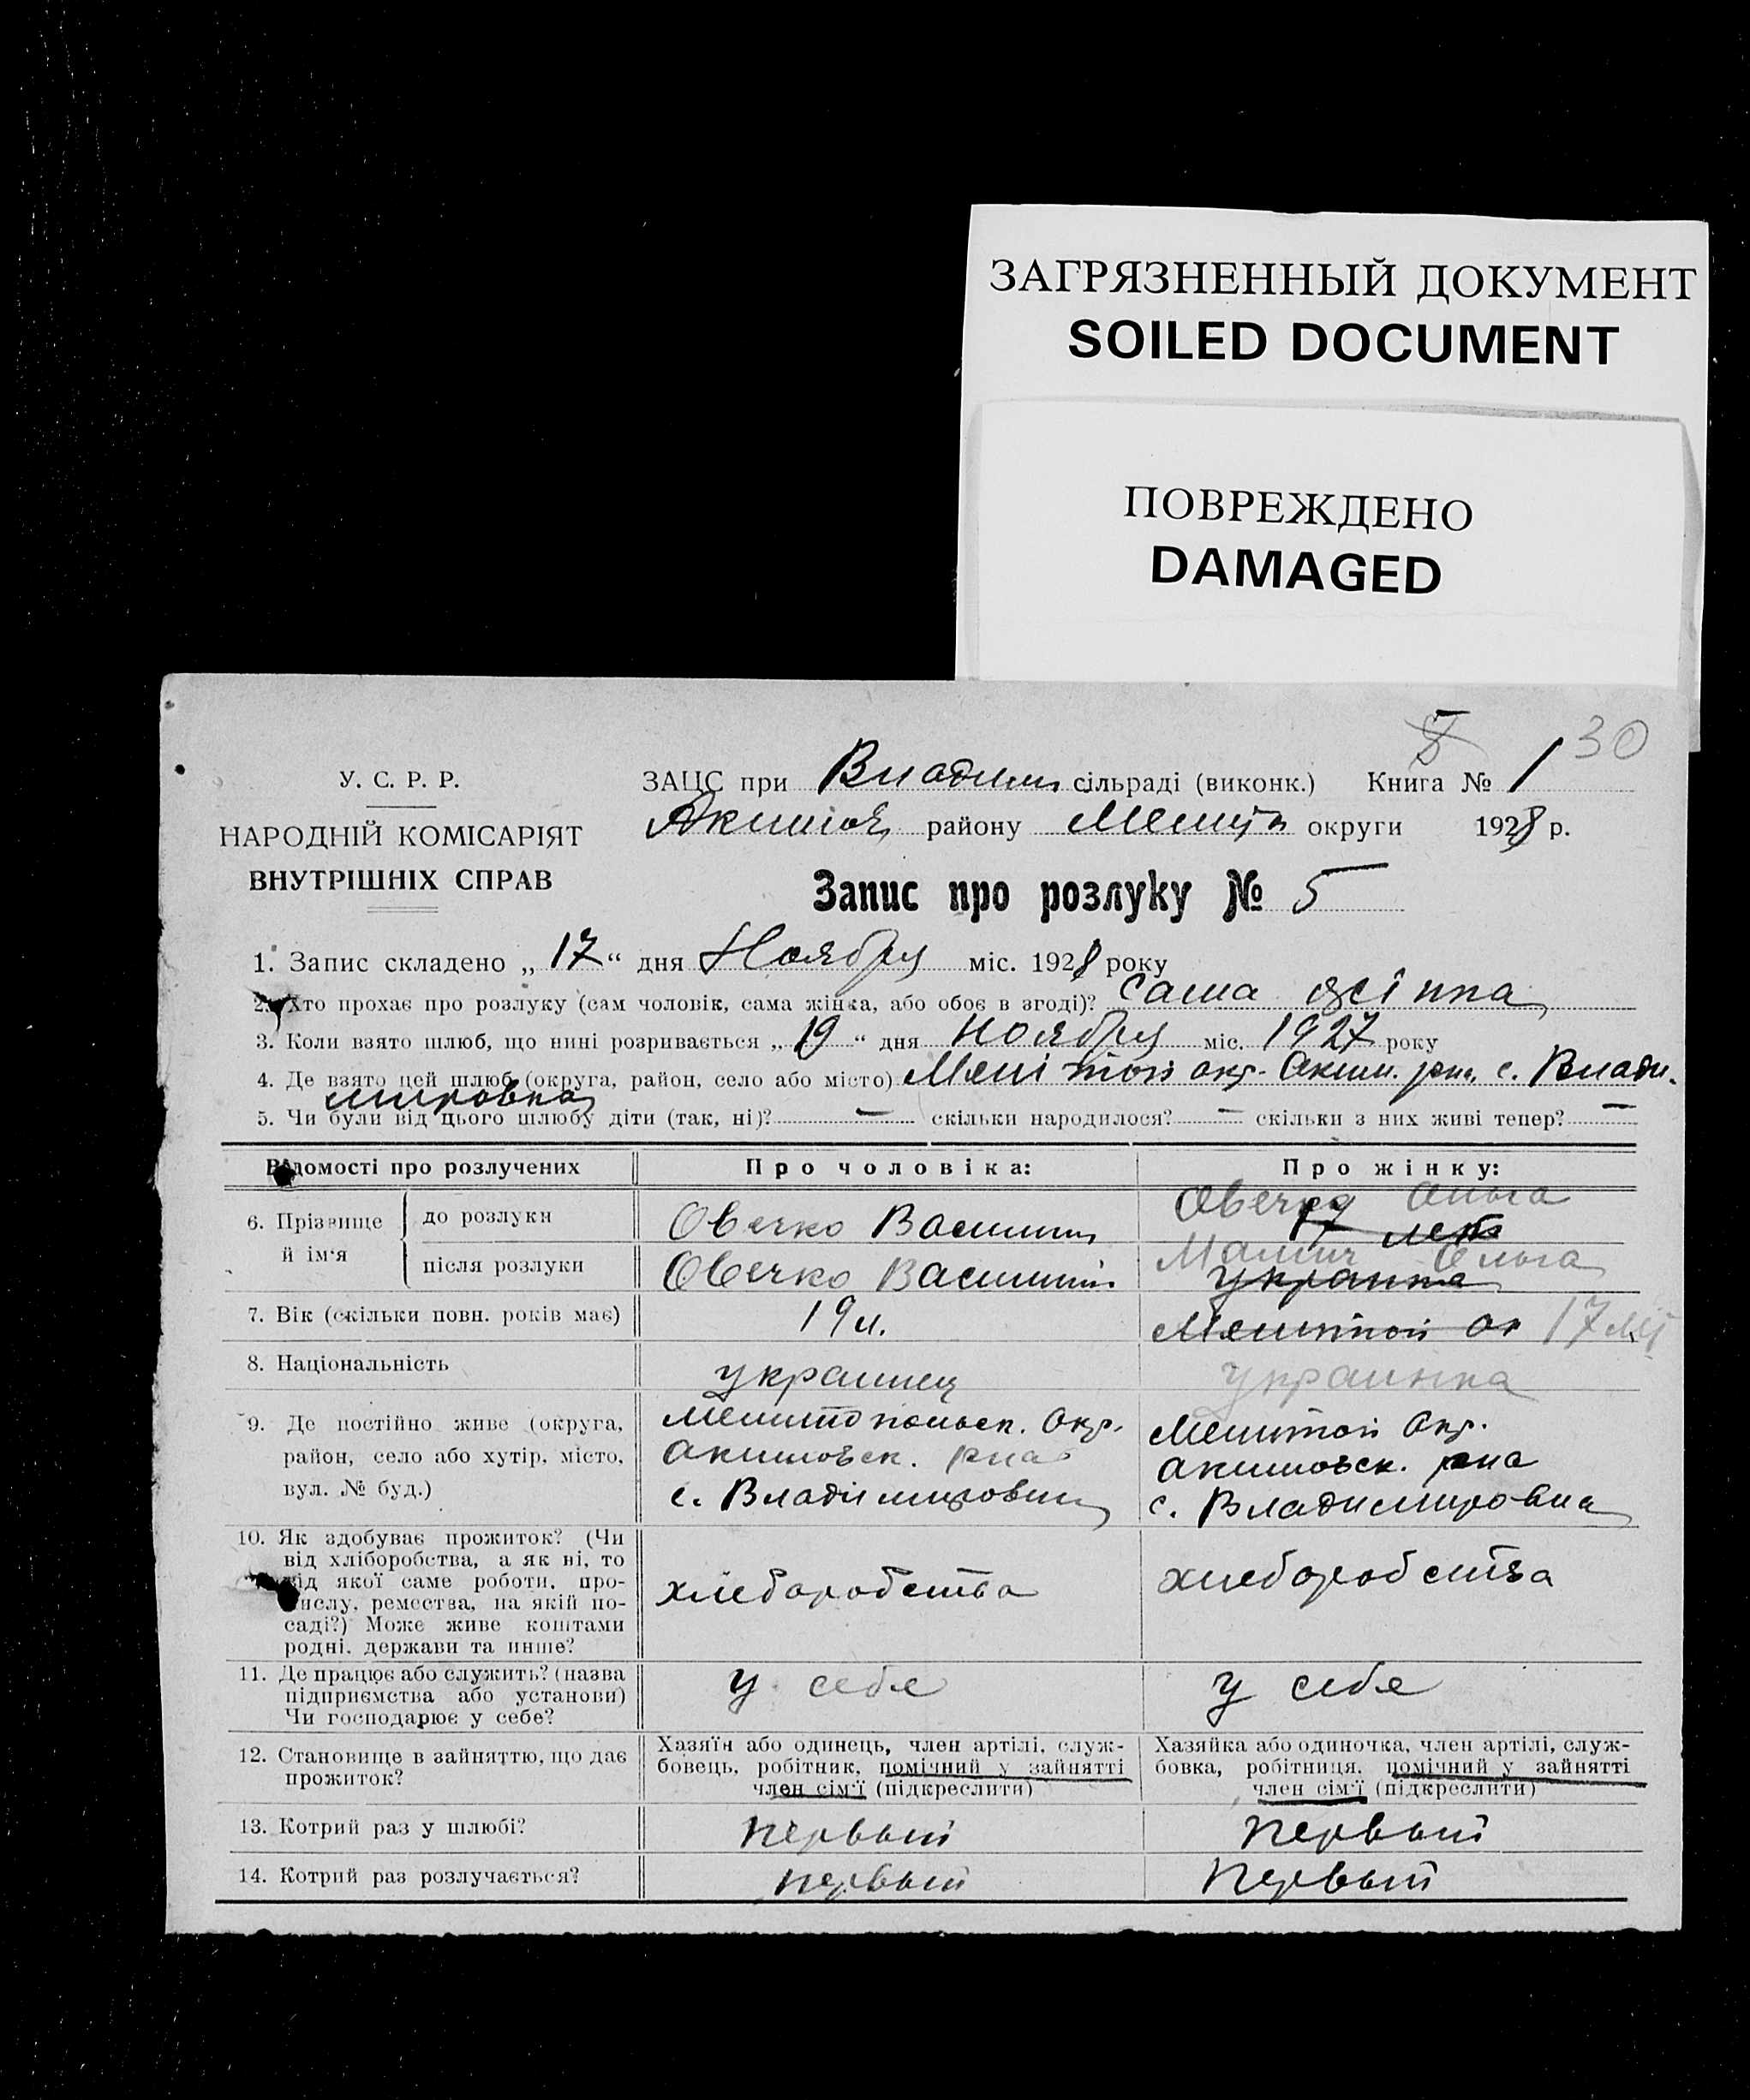 ЗАГРЯЗНЕННЫЙ ДОКУМЕНТ
SOILED DOCUMENT
ПОВРЕЖДЕНО
DAMAGED
30
У. С. Р. Р.
НАРОДНІЙ КОМІСАРІЯТ
ВНУТРІШНІХ СПРАВ
ЗАЦС при Владим сільраді (виконк.) Книга № 1
Акимов району Меліт округи 1928 р.
Запис про розлуку № 5
1. Запис складено „ 17 “ дня Ноября міс. 1928 року
2. Хто прохає про розлуку (сам чоловік, сама жінка, або обоє в згоді)? сама
3. Коли взято шлюб, що нині розривається „ 19 “ дня Ноября міс. 1927 року
4. Де взято цей шлюб (округа, район, село або місто) окр. Аким. рна. с. Влади-
мировка
5. Чи були від цього шлюбу діти (так, ні)? — скільки народилося? — скільки з них живі тепер? —
Відомості про розлучених
Про чоловіка:
Про жінку:
6. Прізвище й ім‘я
до розлуки
Овечко Василий
Ольга
після розлуки
Овечко Василий
Ольга
украинка
7. Вік (скільки повн. років має)
19 л.
17
8. Національність
украинец
украинка
9. Де постійно живе (округа,
район, село або хутір, місто,
вул. № буд.)
Мелитопольск. Окр.
Акимовск. рна
с. Владимировка
Мелитоп Окр.
Акимовск. рна
с. Владимировка
10. Як здобуває прожиток? (Чи
від хліборобства, а як ні, то
від якої саме роботи, про-
мислу, ремества, на якій по-
саді?) Може живе коштами
родні, держави та инше?
хлеборобства
хлеборобства
11. Де працює або служить? (назва
підприємства або установи)
Чи господарює у себе?
у себе
у себе
12. Становище в зайняттю, що дає
прожиток?
Хазяїн або одинець, член артілі, служ-
бовець, робітник, помічний у зайнятті
член сім‘ї (підкреслити)
Хазяйка або одиночка, член артілі, служ-
бовка, робітниця, помічний у зайнятті
член сім‘ї (підкреслити)
13. Котрий раз у шлюбі?
первый
первый
14. Котрий раз розлучається?
первый
первый